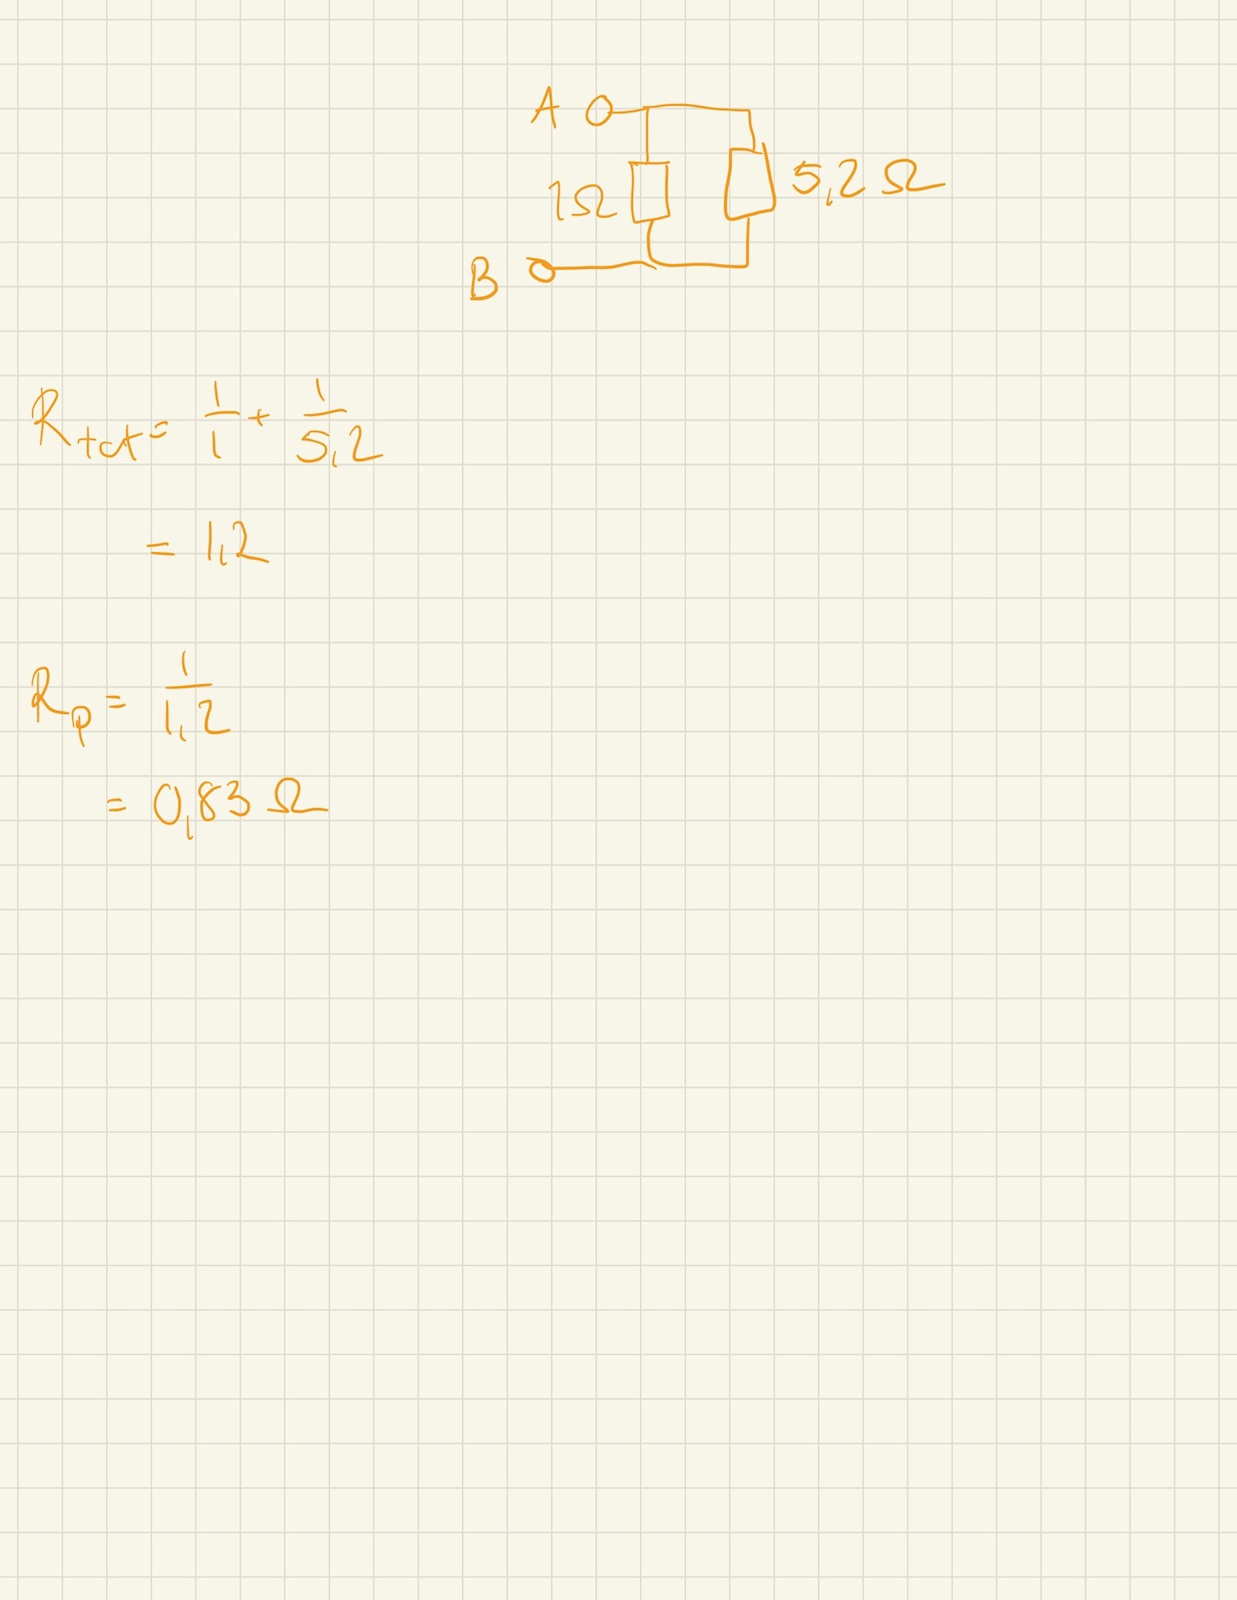 A
1Ω 5,2 Ω
B
R_tot = 1/1 + 1/5,2
= 1,2
R_p = 1/1,2
= 0,83 Ω